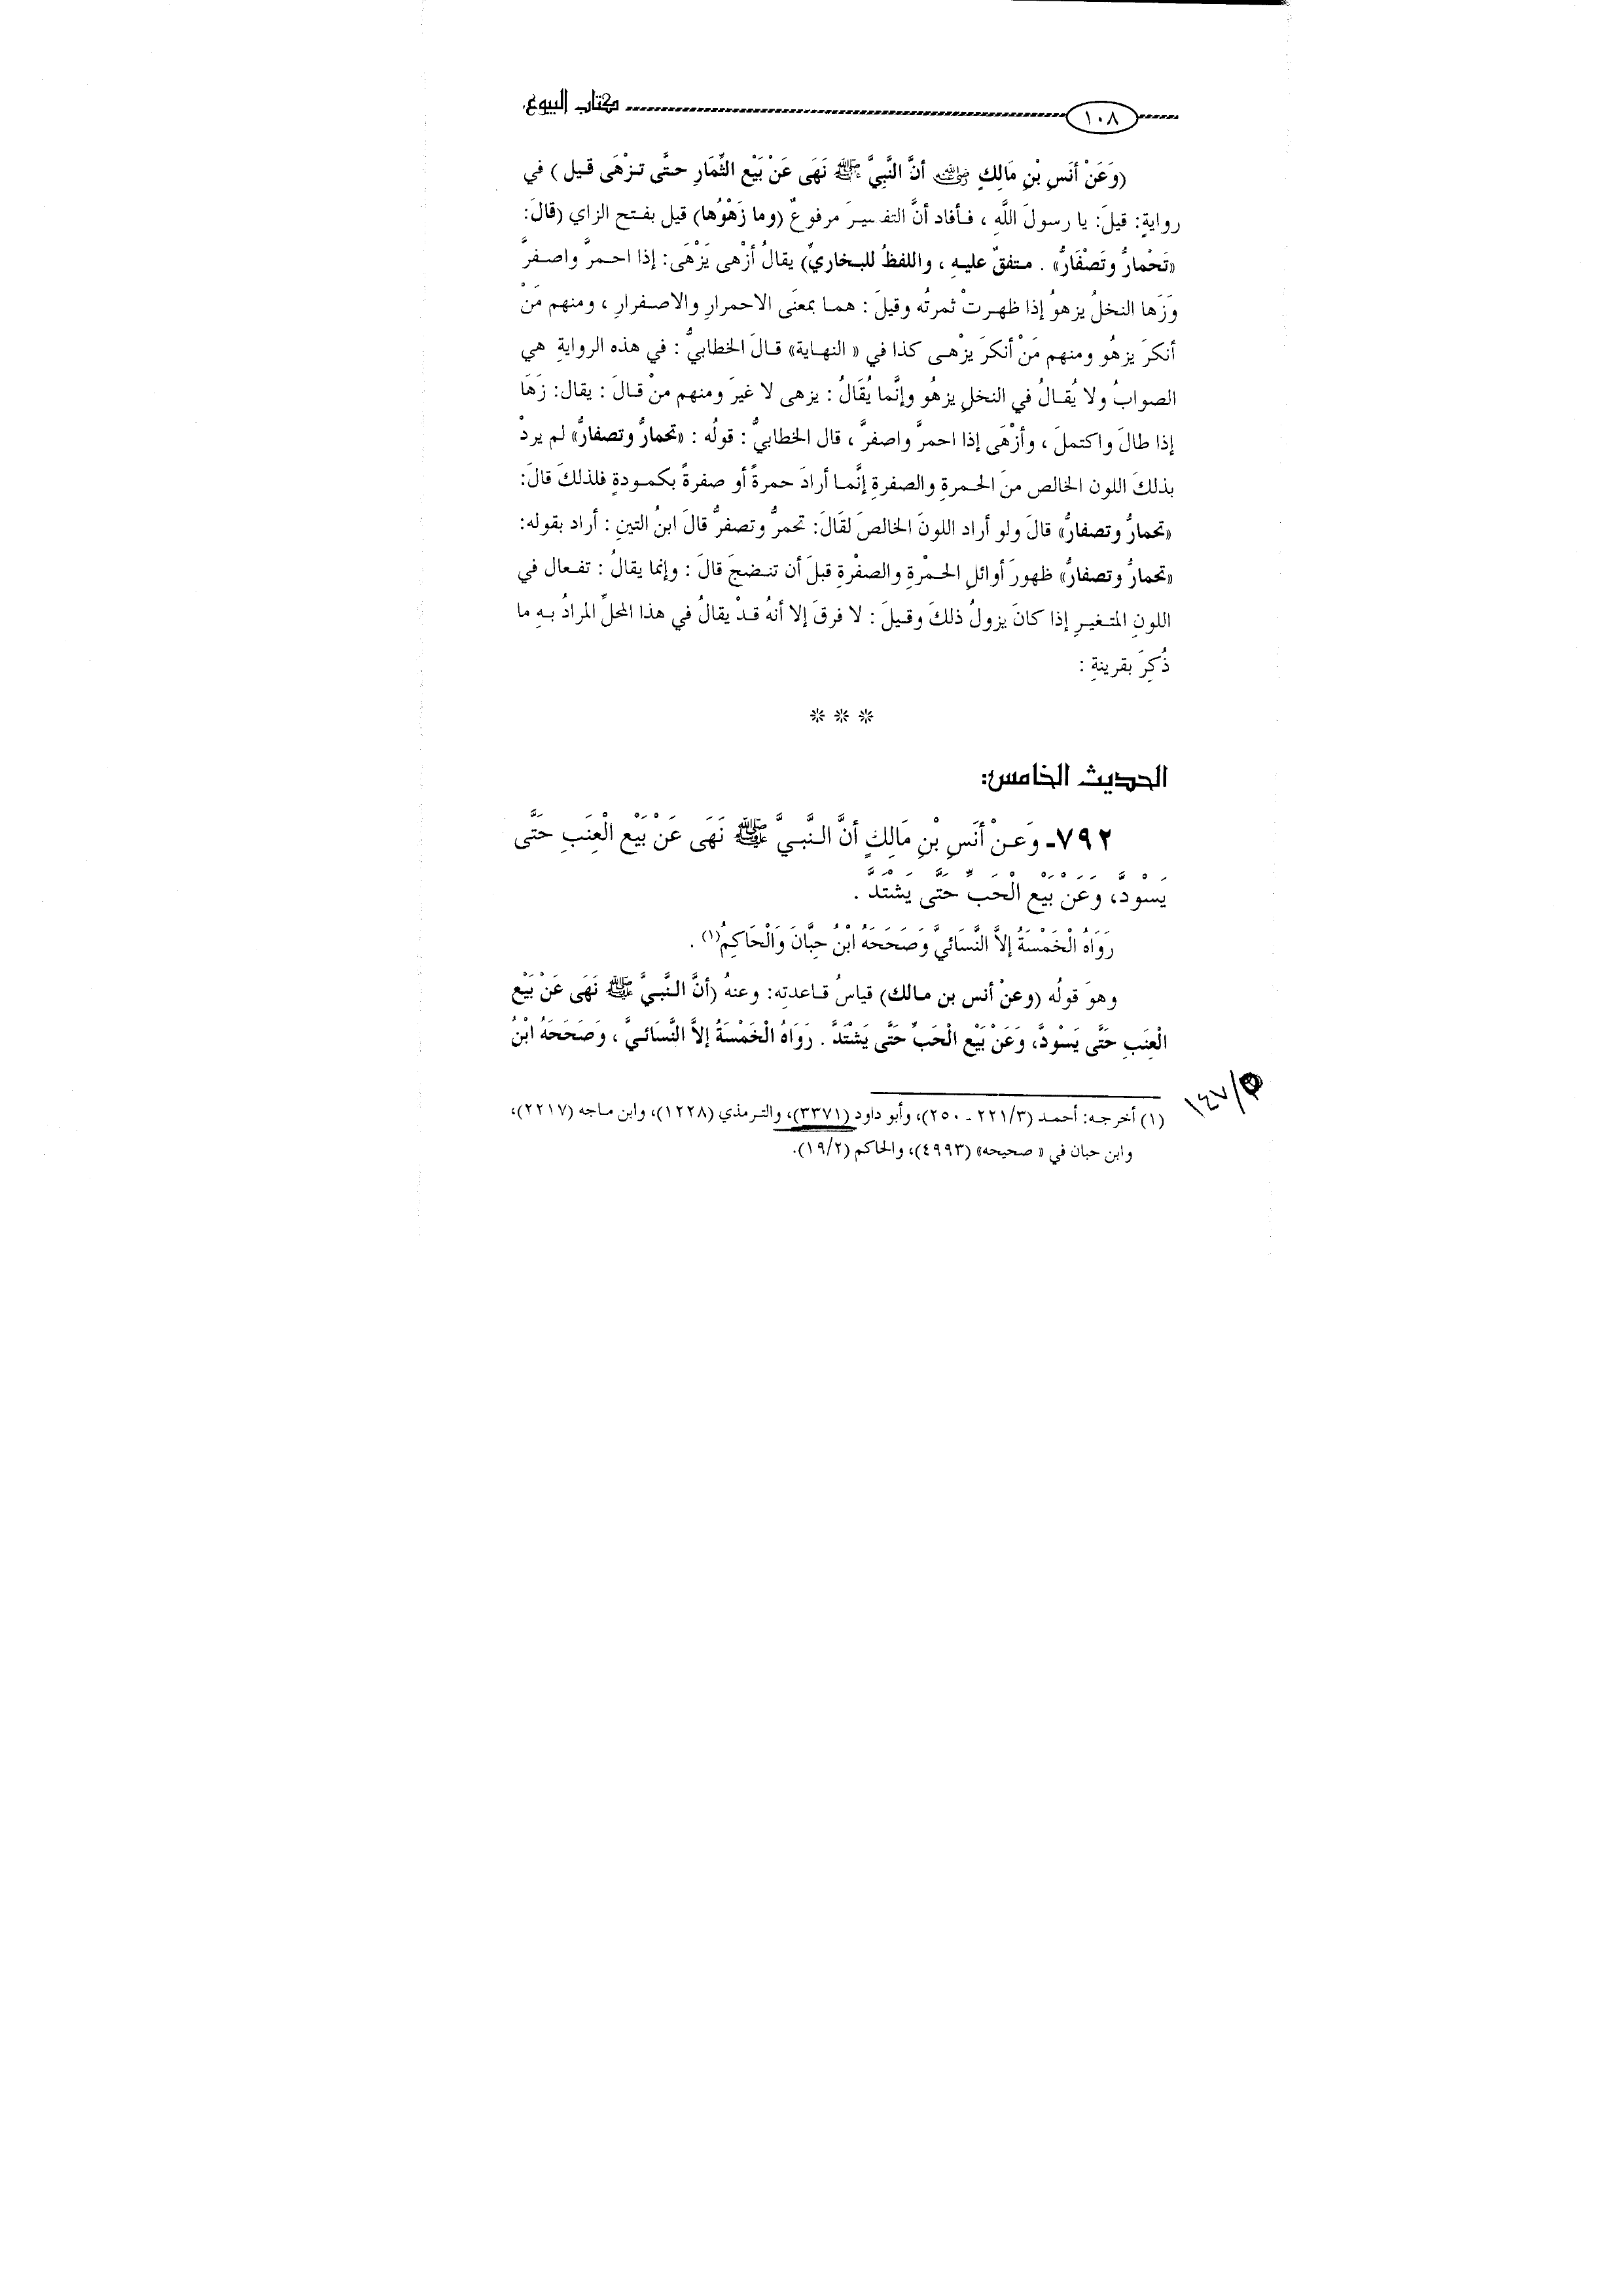 ١٠٨ كتاب البيوع
(وَعَنْ أنَسِ بْنِ مَالِكٍ رضي الله عنه أنَّ النَّبِيَّ ﷺ نَهَى عَنْ بَيْعِ الثِّمَارِ حتَّى تزْهَى قيل ) في
روايةٍ: قيلَ: يا رسولَ اللَّهِ ، فأفاد أنَّ التفسيرَ مرفوعٌ (وما زَهْوُها) قيل بفتح الزاي (قالَ:
«تَحْمارُّ وتَصْفَارُّ» . متفقٌ عليهِ ، واللفظُ للبخاريِّ) يقالُ أزْهى يَزْهَى: إذا احمرَّ واصفرَّ
وَزَها النخلُ يزهوُ إذا ظهرتْ ثمرتُه وقيلَ : هما بمعنَى الاحمرارِ والاصفرارِ ، ومنهم مَنْ
أنكرَ يزهُو ومنهم مَنْ أنكرَ يزْهى كذا في « النهاية» قالَ الخطابيُّ : في هذه الروايةِ هي
الصوابُ ولا يُقالُ في النخلِ يزهُو وإنَّما يُقَالُ : يزهى لا غيرَ ومنهم منْ قالَ : يقال: زَهَا
إذا طالَ واكتملَ ، وأزْهَى إذا احمرَّ واصفرَّ ، قال الخطابيُّ : قولُه : «تحمارُّ وتصفارُّ» لم يردْ
بذلكَ اللون الخالص منَ الحمرةِ والصفرةِ إنَّما أرادَ حمرةً أو صفرةً بكمودةٍ فلذلكَ قالَ:
«تحمارُّ وتصفارُّ» قالَ ولو أراد اللونَ الخالصَ لقَالَ: تحمرُّ وتصفرُّ قالَ ابنُ التينِ : أراد بقوله:
«تحمارُّ وتصفارُّ» ظهورَ أوائلِ الحمْرةِ والصفْرةِ قبلَ أن تنضجَ قالَ : وإنما يقالُ : تفعال في
اللونِ المتغيرِ إذا كانَ يزولُ ذلكَ وقيلَ : لا فرقَ إلا أنهُ قدْ يقالُ في هذا المحلِّ المرادُ بهِ ما
ذُكِرَ بقرينةِ :
❊ ❊ ❊
الحديث الخامس:
٧٩٢- وَعنْ أنَسِ بْنِ مَالِكٍ أنَّ النَّبيَّ ﷺ نَهَى عَنْ بَيْعِ الْعِنَبِ حَتَّى
يَسْوَدَّ، وَعَنْ بَيْعِ الْحَبِّ حَتَّى يَشْتَدَّ .
رَوَاهُ الْخَمْسَةُ إلاَّ النَّسَائيَّ وَصَحَحَهُ ابْنُ حِبَّانَ وَالْحَاكِمُ(١) .
وهوَ قولُه (وعنْ أنس بن مالك) قياسُ قاعدتِه: وعنهُ (أنَّ النَّبيَّ ﷺ نَهَى عَنْ بَيْعِ
الْعِنَبِ حَتَّى يَسْوَدَّ، وَعَنْ بَيْعِ الْحَبِّ حَتَّى يَشْتَدَّ . رَوَاهُ الْخَمْسَةُ إلاَّ النَّسَائيَّ ، وَصَحَحَهُ ابْنُ
(١) أخرجه: أحمد (٢٢١/٣ - ٢٥٠)، وأبو داود (٣٣٧١)، والترمذي (١٢٢٨)، وابن ماجه (٢٢١٧)،
وابن حبان في « صحيحه» (٤٩٩٣)، والحاكم (١٩/٢).